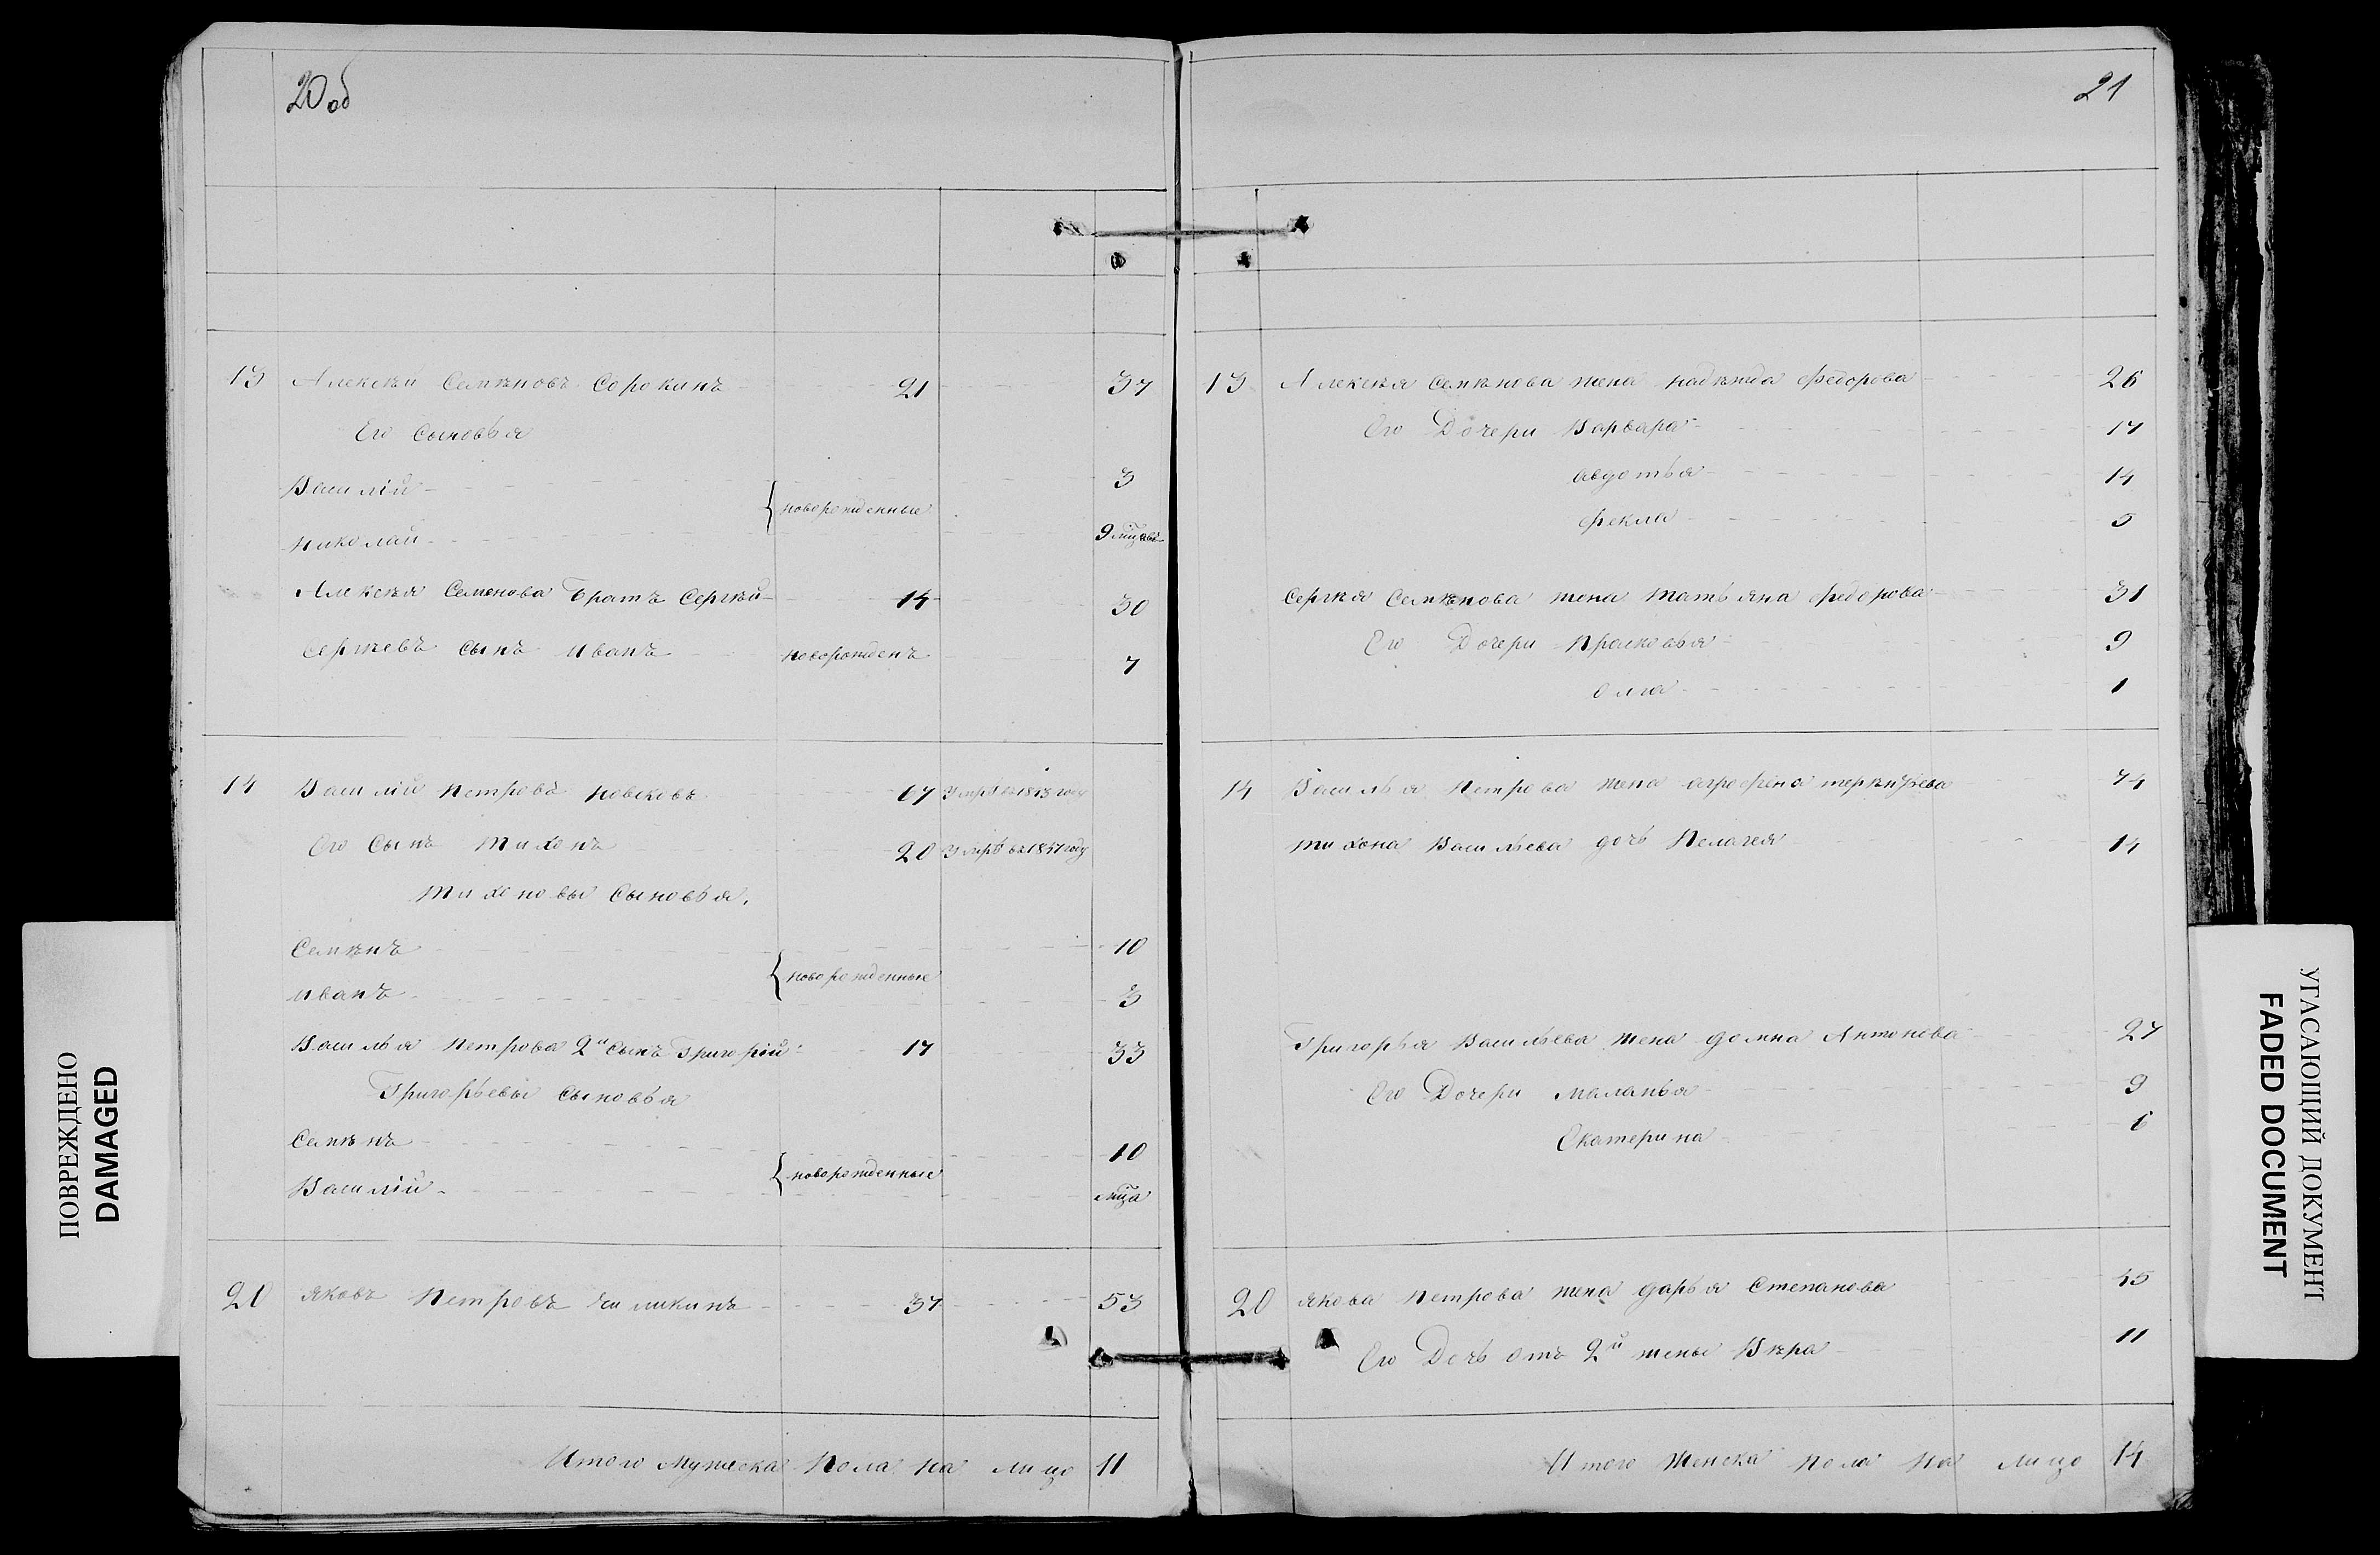 20 об
13 Алексѣй Семѣновъ Сорокинъ 21 37
Его Сыновья
Василий 3
новорожденные
Николай 9 мцавъ
Алексѣя Семенова братъ Сергѣй 14 30
Сергѣевъ Сынъ Иванъ новорожденъ 7
14 Василий Петровъ Умеръ въ году
Его Сынъ Тихонъ 20 Умеръ въ году
Тихоновы Сыновья.
Семѣнъ 10
новорожденные
Иванъ 3
Василья Петрова 2й Сынъ Григорий 17 33
Григорьевы Сыновья
Семѣнъ 10
новорожденные
Василий мца
20 Яковъ Петровъ 37 53
Итого Мужеска Пола на лицо 11
21
13 Алексѣя Семѣнова жена Надѣжда Федорова 26
Его Дочери Варвара 17
Авдотья 14
Фекла 5
Сергѣя Семѣнова жена Татьяна Федорова 31
Его Дочери Прасковья 9
Олга 1
14 Василья Петрова жена Агрофена Терѣнтьева
Тихона Васильева дочь Пелагея 14
Григорья Васильева жена Домна Антонова 27
Его Дочери Маланья 9
Екатерина 6
20 Якова Петрова жена Дарья Степанова 45
Его Дочь отъ 2й жены Вѣра 11
Итого Женска пола на лицо 14
ПОВРЕЖДЕНО
DAMAGED
УГАСАЮЩИЙ ДОКУМЕНТ
FADED DOCUMENT